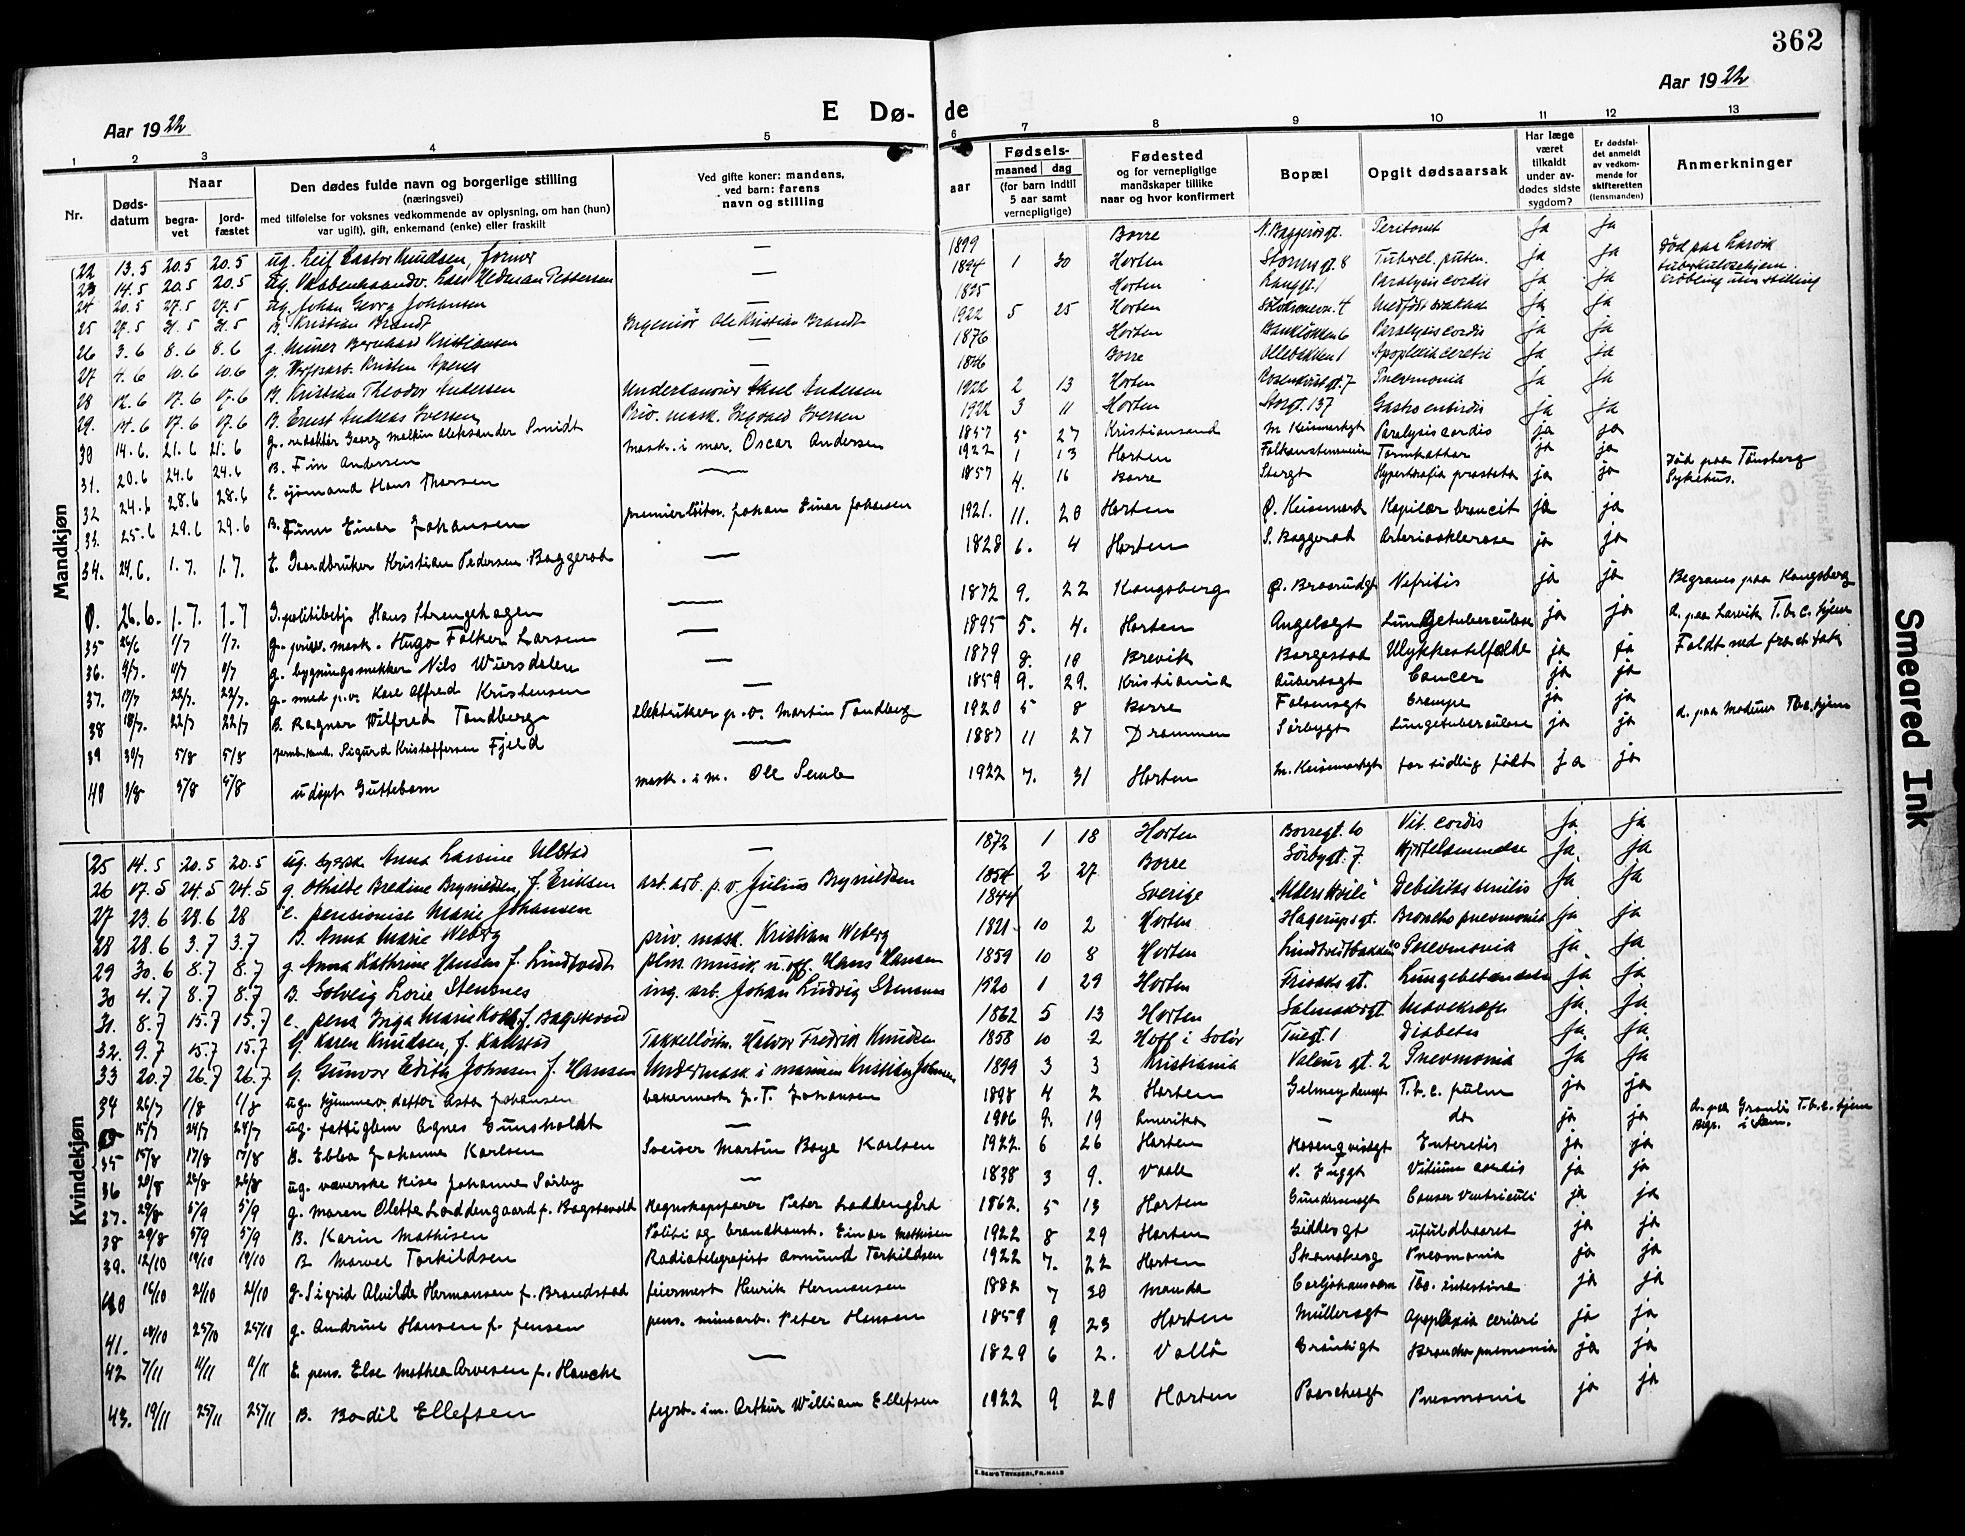 362
Aar 1922
E Dø-
de
Aar 1922
1 2 3 4 5 6 7 8 9 10 11 12 13
Nr.
Døds-
datum
Naar
begra-
vet
jord-
fæstet
Den dødes fulde navn og borgerlige stilling
(næringsvei)
med tilføielse for voksnes vedkommende av oplysning, om han (hun)
var ugift), gift, enkemand (enke) eller fraskilt
Ved gifte koner: mandens,
ved barn: farens
navn og stilling
Fødsels-
aar
maaned dag
(for barn indtil
5 aar samt
vernepligtige)
Fødested
og for vernepligtige
mandskaper tillike
naar og hvor konfirmert
Bopæl
Opgit dødsaarsak
Har læge
været
tilkaldt
under av-
dødes sidste
sygdom?
Er dødsfal-
det anmeldt
av vedkom-
mende for
skifteretten
(lensmanden)
Anmerkninger
Mandkjøn
22 13.5 20.5 20.5 ug. Leif Castor Knudsen, former — 1899 Borre N. Baggerødgt. Peritonit Ja Ja
23 14.5 20.5 20.5 ug. Lars Hedman Pettersen — 1894 1 30 Horten Stormsgt. 8 Tubercl. Ja Ja Død paa Larvik tuberkulosehjem
24 20.5 27.5 27.5 ug. Johan Georg Johansen — Horten Langgt. 1 Paralysis cordis Ja Ja
25 27.5 31.5 31.5 B. Kristian Brandt Ingeniør Ole Kristian Brandt 1922 5 25 Horten Ja Ja
26 3.6 8.6 8.6 g. Murer Bernhard Kristiansen — 1876 Horten Bankløkken 6 Paralysis cordis Ja Ja
27 4.6 10.6 10.6 g. Kristen — 1846 Borre Ollebakken 1 Apoplexia cerebri Ja Ja
28 12.6 17.6 17.6 B. Kristian Theodor Andersen Underkanonér Aksel Andersen 1922 2 13 Horten Rosenkvistgt. 7 Pnevmonia Ja Ja
29. 14.6 17.6 17.6 B. Ernst Andreas Iversen Priv. mask. Ingvald Iversen 1922 3 11 Horten Storgt. 137 Gastro enteritis ja Ja
30 14.6. 21.6 21.6 g. redaktør Georg Aleksander Smidt 1857 5 27 Kristiansand Paralysis cordis Ja ja
31. 20.6 24.6 24.6 B. Fin Andersen mask. i mar. Oscar Andersen 1922 1 13 Horten Falkenstensveien Tarmkattar ja ja
32 24.6 28.6 28.6 E. sjømand Hans Thorsen — 1857 4. 16 Borre Storgt Hypertrofia prostata ja ja Død paa Tønsberg Sykehus.
33. 25.6 29.6 29.6 B. Finn Einar Johansen premierløitn. Johan Einar Johansen 1921. 11. 20 Horten Ø. Keisemark Kapilær broncit ja ja
34. 24.6. 1.7. 1.7. E. Gaardbruker Kristian Pedersen Baggerød — 1828 6. 4 Horten S. Baggerød Arteriosklerose ja ja
0. 26.6. 1.7. 1.7 G. politibetj. Hans Strengehagen — 1872 9. 22 Kongsberg Ø. Braarudgt Nefritis ja ja Begraves paa Kongsberg
35 26/6 1/7 1/7. g. mask. Hugo Falker Larsen — 1895 5. 4. Horten Angelsgt Lungetuberculose ja ja d. paa Larvik T.b.c. hjem
36. 4/7 g. bygningssnekker Nils Wiersdalen — 1879 8. 18 Brevik Borgestad Ulykkestilfælde ja ja Faldt ned fra et tak
37. 17/7 22/7. 22/7. g. smed p.v. Karl Alfred Kristensen — 1859 9. 29. Kristiania Aubertsgt Cancer ja ja
38 18/7. 22/7 22/7 B. Ragnar Wilfred Tandberg elektriker p.v. Martin Tandberg 1920 5 8 Borre Falsensgt Crampe ja ja
39 30/7 5/8 5/8 Sigurd Kristoffersen Fjeld — 1887 11 27 Drammen Sørbygt Lungetuberculose ja ja d. paa Modum Tbc. hjem
40 3/8 5/8 5/8 udøpt Guttebarn mask. i m. Ole Semb 1922 7. 31 Horten for tidlig født ja ja
Kvindekjøn
25 14.5 20.5 20.5 ug. Anna Lavine Ulstad — 1872 1 18 Horten Borregt. 10 Vit. cordis Ja Ja
26 17.5 24.5 24.5 g. Othilde Bredine Brynildsen, f. Eriksen art. arb. p.v. Julius Brynildsen 1854 2 27 Borre Sørbygt. 7. Ja. Ja
27 23.6 28.6 28 e. pensionise Marie Johansen — 1844 Sverige "Alders Hvile" Debilitas senilis Ja Ja
28 28.6 3.7 3.7 B. Anna Marie Weberg priv. mask. Kristian Weberg 1921 10 2 Horten Hagerupsgt. Broncho pnevmonia Ja Ja
29 30.6 8.7 8.7 g. Anna Kathrine Hansen f. Lindtvedt musik. u.off. Hans Hansen 1859 10 8 Horten Lindtvedtbakken Pnevmonia Ja Ja
30 4.7 8.7 8.7 B. Solveig Lovie Stensnes ing. arb. Johan Ludvig Stensnes 1920 1 29 Horten Friisaksgt. Lungebetændelse Ja Ja.
31. 8.7 15.7 15.7 e. pens Inga Marie f. Bagstevold 1862 5 13 Horten Mavekræft Ja. Ja.
32. 9.7 15.7 15.7 G. Karen Knudsen, f. Takkelløitn. Halvor Fredrik Knudsen 1858 10 2 Hoff i Solør Tuegt. 1 Diabetes Ja. Ja
33 20.7 26.7 26.7 g. Gunvor Edith Johnsen f. Hansen Undermask i marinen Kristian Johnsen 1899 3 3 Kristiania Valeurgt. 2 Pnevmonia Ja Ja
34 26/7 1/8 1/8 ug. hjemmev. datter Asta Johansen bakermest. J. T. Johansen 1898 4 2 Horten T.b.c. pulm ja ja
0 15/7 24/7 24/7 ug. fattiglem Agnes Gunsholdt — 1906 9. 19 Amerika — do ja ja d. paa Granli T.b.c. hjem Begr. i Sem.
35 15/8 17/8 17/8 B. Ebba Johanne Karlsen Sveiser Martin Boye Karlsen 1922. 6 26 Horten Rosenqvistgt Enteretis ja ja
36 20/8 26/8 26/8 ug. væverske Lise Johanne Sørby — 1838 3 9. Vaale Vitium cordis ja ja
37. 29/8 5/9 5/9 g. Maren Oletta Loddengaard f. Bagstevold Regnskapsfører Peter Loddengård 1862. 5 13 Horten Gundersensgt Cancer Ventriculi ja ja
38 29/8 5/9 5/9 B. Karin Mathisen Politi og brandkonst. Einar Mathisen 1922 8 29 Horten Geddesgt ufuldbaaret ja ja
39. 12/10 19/10 19/10 B. Marvel Torkildsen Radiotelegrafist Asmund Torkildsen 1922 7. 22 Horten Skansberg Pnevmonia ja ja
40 16/10 21/10 21/10 g. Sigrid Alvilde Hermansen f. Brandstad feiermest. Henrik Hermansen 1882 7 30 Mandal Carljohansvern Tbc. intestina ja ja
41. 25/10 25/10 g. Andrine Hansen f. Jensen pens. minearb. Peter Hansen 1859 9 23 Horten Müllersgt Apoplexia ja ja
42 7/11 11/11 11/11 E. pens. Else Mathea Arvesen f. Haucke — 1829 6 2. Vallø Broncho pnevmonia ja ja
43. 19/11 25/11 25/11 B. Bodil Ellefsen fyrb. i m. Arthur William Ellefsen 1922 9 20 Horten Paaschesgt Pnevmonia ja ja
E. SEM'S TRYKKERI, FR.HALD
Smeared Ink